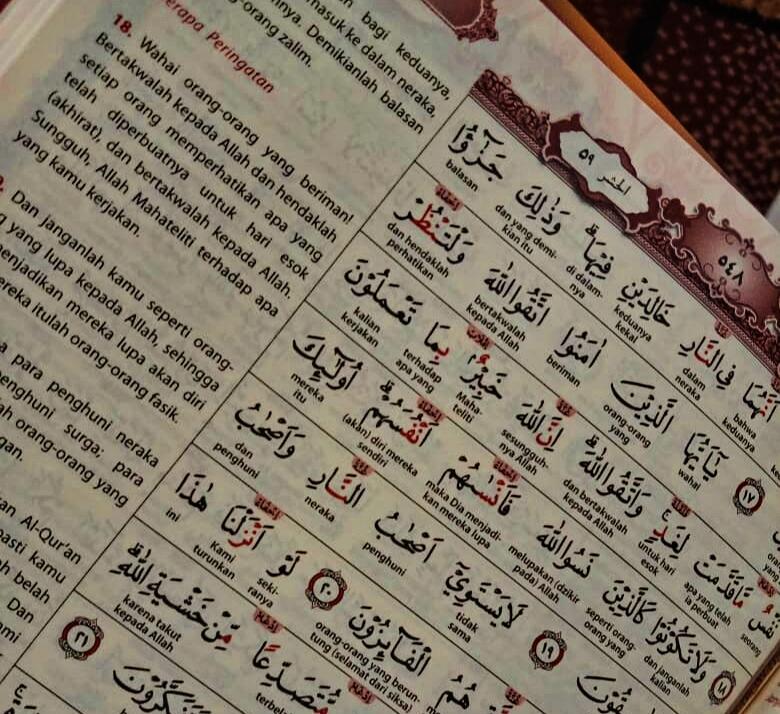 n bagi keduanya,
masuk ke dalam neraka,
nnya. Demikianlah balasan
-orang zalim.
erapa Peringatan
18. Wahai orang-orang yang beriman!
Bertakwalah kepada Allah dan hendaklah
setiap orang memperhatikan apa yang
telah diperbuatnya untuk hari esok
(akhirat), dan bertakwalah kepada Allah.
Sungguh, Allah Mahateliti terhadap apa
yang kamu kerjakan.
Dan janganlah kamu seperti orang-
g yang lupa kepada Allah, sehingga
menjadikan mereka lupa akan diri
ereka itulah orang-orang fasik.
a para penghuni neraka
penghuni surga; para
ah orang-orang yang
gan.
kan Al-Qur'an
pasti kamu
ah belah
Dan
ami
الحشر ٥٩
٥٤٨
اَنَّهُمَا فِى النَّارِ خَالِدَيْنِ فِيْهَاۗ وَذٰلِكَ جَزٰۤؤُا
bahwa keduanya dalam neraka keduanya kekal di dalam-nya dan yang demi-kian itu balasan
١٧ يٰٓاَيُّهَا الَّذِيْنَ اٰمَنُوا اتَّقُوا اللّٰهَ وَلْتَنْظُرْ
wahai orang-orang yang beriman bertakwalah kepada Allah dan hendaklah perhatikan
نَفْسٌ مَّا قَدَّمَتْ لِغَدٍۚ وَاتَّقُوا اللّٰهَ ۗ اِنَّ اللّٰهَ خَبِيْرٌۢ بِمَا تَعْمَلُوْنَ
seorang apa yang telah ia perbuat untuk hari esok dan bertakwalah kepada Allah sesungguh-nya Allah Maha-teliti terhadap apa yang kalian kerjakan
١٨ وَلَا تَكُوْنُوْا كَالَّذِيْنَ نَسُوا اللّٰهَ فَاَنْسٰىهُمْ اَنْفُسَهُمْۗ اُولٰۤىِٕكَ
dan janganlah kalian seperti orang-orang yang melupakan (dzikir pada) Allah maka Dia menjadi-kan mereka lupa (akan) diri mereka sendiri mereka itu
١٩ لَا يَسْتَوِيْٓ اَصْحٰبُ النَّارِ وَاَصْحٰبُ
tidak sama penghuni neraka dan penghuni
هُمُ الْفَاۤىِٕزُوْنَ ٢٠ لَوْ اَنْزَلْنَا هٰذَا
orang-orang yang berun-tung (selamat dari siksa) seki-ranya Kami turunkan ini
مُّتَصَدِّعًا مِّنْ خَشْيَةِ اللّٰهِ ۗ
terbel karena takut kepada Allah
٢١